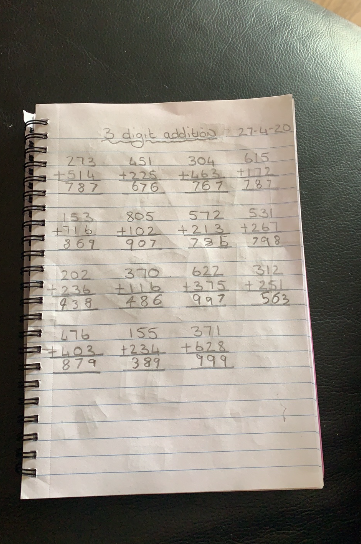 3 digit addition 27-4-20
273 451 304 615
+514 +225 +463 +172
787 676 767 787
153 805 572 531
+716 +102 +213 +267
869 907 786 798
202 370 622 312
+236 +116 +375 +251
438 486 997 563
476 155 371
+403 +234 +628
879 389 999